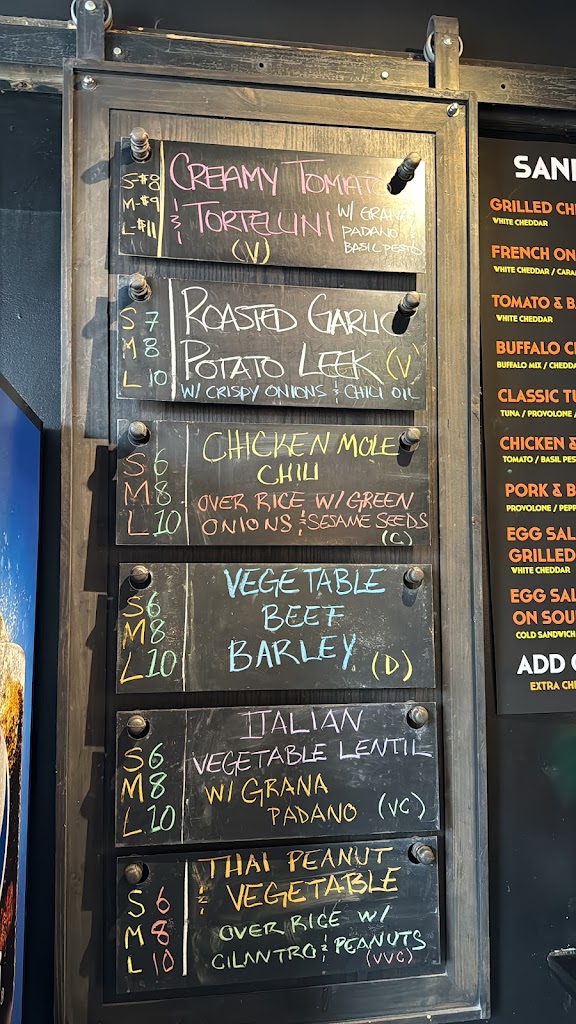 CREAMY TOMATO
S-$8
M-$9
L-$11
& TORTELLINI
W/ GRANA
PADANO &
BASIL PESTO
(V)
S 7
M 8
L 10
ROASTED GARLIC
POTATO LEEK (V)
W/ CRISPY ONIONS & CHILI OIL
S 6
M 8
L 10
CHICKEN MOLE
CHILI
OVER RICE W/ GREEN
ONIONS & SESAME SEEDS
(C)
S 6
M 8
L 10
VEGETABLE
BEEF
BARLEY (D)
S 6
M 8
L 10
ITALIAN
VEGETABLE LENTIL
W/ GRANA
PADANO (VC)
S 6
M 8
L 10
THAI PEANUT
& VEGETABLE
OVER RICE W/
CILANTRO & PEANUTS
(VVC)
SAN
GRILLED CH
WHITE CHEDDAR
FRENCH ON
WHITE CHEDDAR / CARA
TOMATO & B
WHITE CHEDDAR
BUFFALO C
BUFFALO MIX / CHEDDA
CLASSIC TU
TUNA / PROVOLONE /
CHICKEN &
TOMATO / BASIL PES
PORK & B
PROVOLONE / PEPP
EGG SAL
GRILLED
WHITE CHEDDAR
EGG SAL
ON SOU
COLD SANDWICH
ADD
EXTRA CH